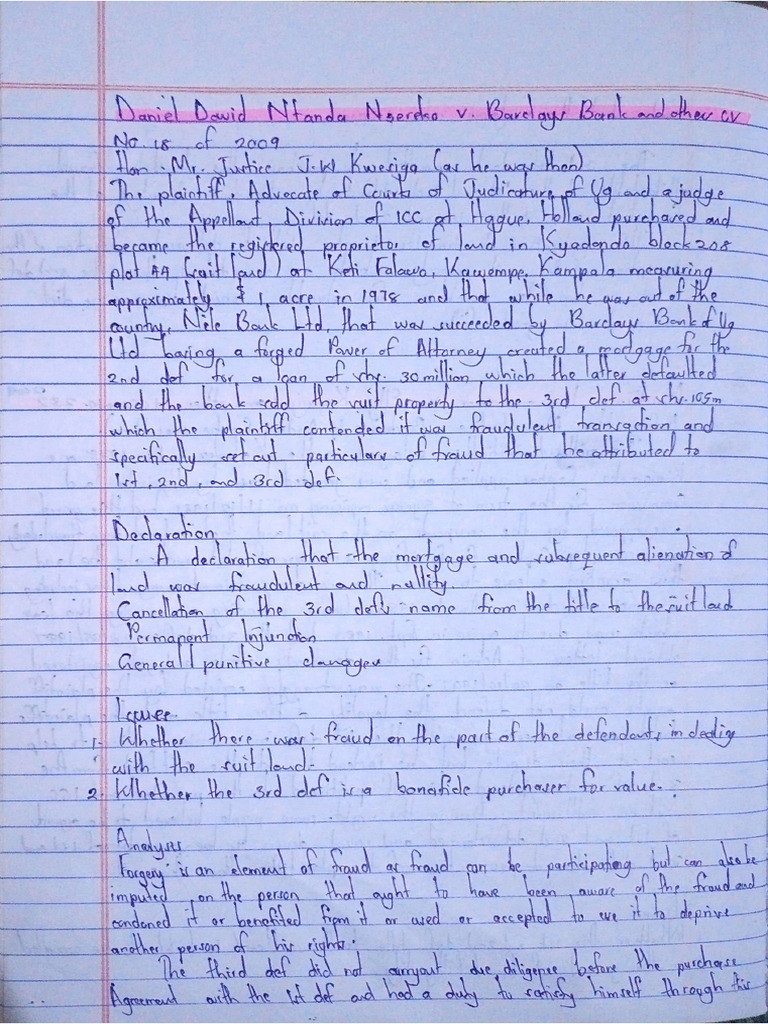 Daniel David Ntanda Nsereko v. Barclays Bank and others CV
No. 18 of 2009
Hon. Mr. Justice J.W Kwesiga (as he was then)
The plaintiff, Advocate of Courts of Judicature of Ug and a judge
of the Appellant Division of ICC at Hague, Holland purchased and
became the registered proprietor of land in Kyadondo block 208
plot AA (suit land) at Keti Falawo, Kawempe, Kampala measuring
approximately 1 acre in 1978 and that while he was out of the
country, Nile Bank Ltd, that was succeeded by Barclays Bank of Ug
Ltd basing a forged Power of Attorney created a mortgage for the
2nd def for a loan of shs. 30 million which the latter defaulted
and the bank sold the suit property to the 3rd def at shs. 105m
which the plaintiff contended it was fraudulent transaction and
specifically set out particulars of fraud that be attributed to
1st, 2nd, and 3rd def.
Declaration
A declaration that the mortgage and subsequent alienation of
land was fraudulent and nullity.
Cancellation of the 3rd defs name from the title to the suit land
Permanent Injunction
General / punitive damages
Issues
1. Whether there was fraud on the part of the defendants in dealig
with the suit land.
2. Whether the 3rd def is a bonafide purchaser for value.
Analyses
Forgery is an element of fraud as fraud can be participating but can also be
imputed on the person that ought to have been aware of the fraud and
condoned it or benefited from it or used or accepted to use it to deprive
another person of his rights.
The third def did not carryout due diligence before the purchase
Agreement with the 1st def and had a duty to satisfy himself through this